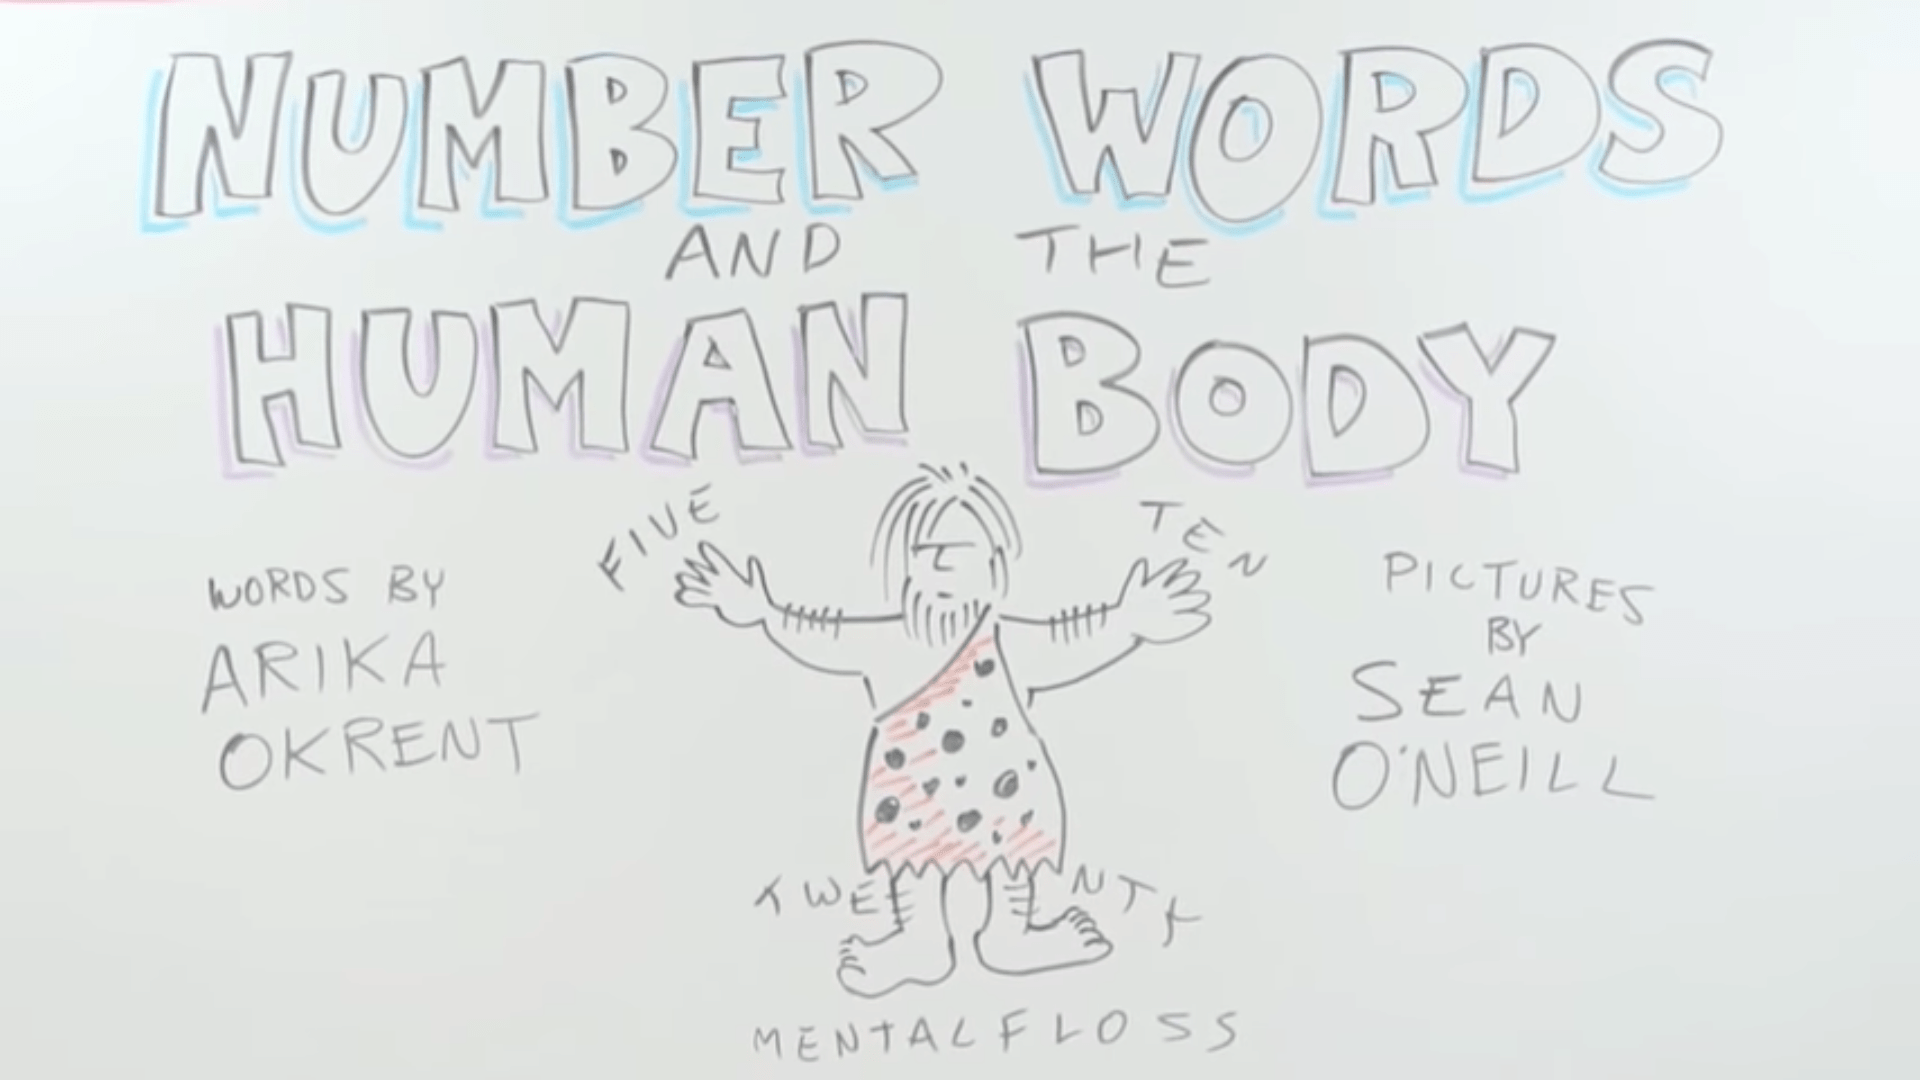 NUMBER WORDS
AND THE
HUMAN BODY
FIVE
TEN
WORDS BY
ARIKA
OKRENT
PICTURES
BY
SEAN
O'NEILL
TWENTY
MENTALFLOSS